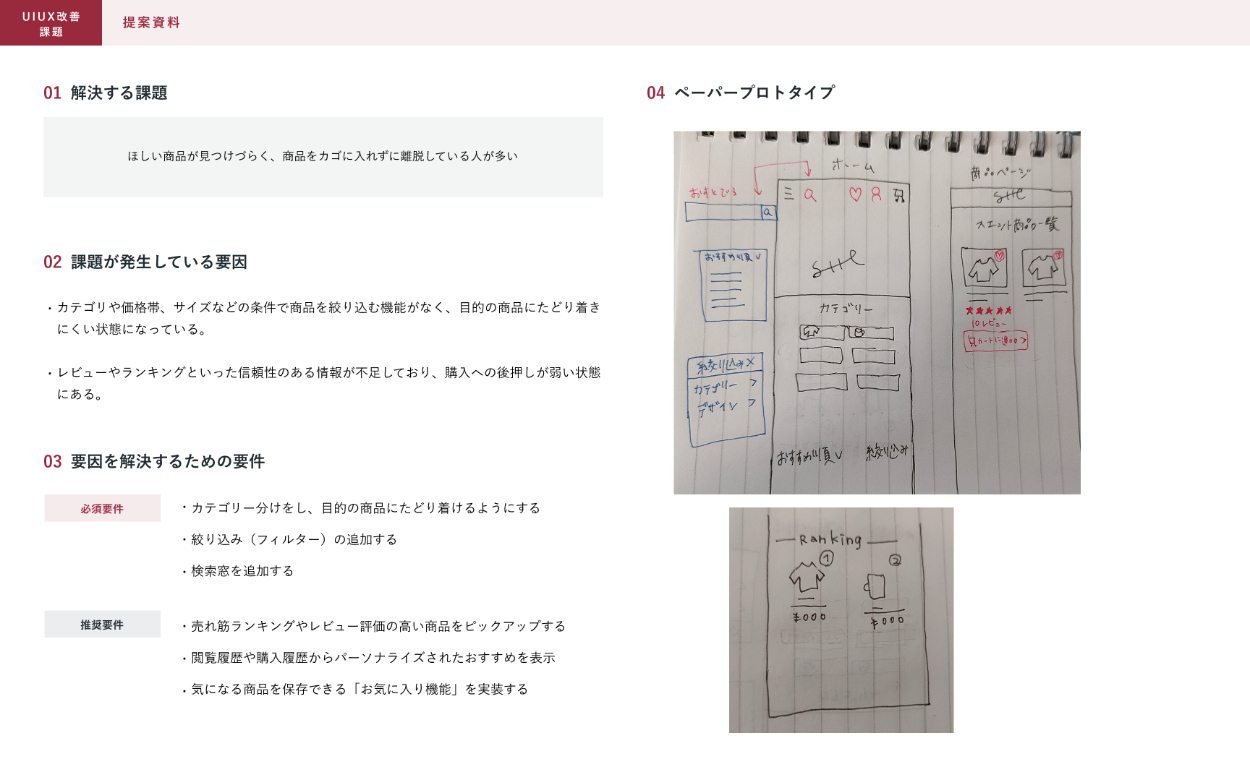 UIUX改善
課題
提案資料
01 解決する課題
ほしい商品が見つけづらく、商品をカゴに入れずに離脱している人が多い
02 課題が発生している要因
・カテゴリや価格帯、サイズなどの条件で商品を絞り込む機能がなく、目的の商品にたどり着き
にくい状態になっている。
・レビューやランキングといった信頼性のある情報が不足しており、購入への後押しが弱い状態
にある。
03 要因を解決するための要件
必須要件
・カテゴリー分けをし、目的の商品にたどり着けるようにする
・絞り込み（フィルター）の追加する
・検索窓を追加する
推奨要件
・売れ筋ランキングやレビュー評価の高い商品をピックアップする
・閲覧履歴や購入履歴からパーソナライズされたおすすめを表示
・気になる商品を保存できる「お気に入り機能」を実装する
04 ペーパープロトタイプ
ホーム
おすとでる
おすすめ順
絞り込み×
カテゴリー >
デザイン >
カテゴリー
おすすめ順
絞り込み
商品ページ
商品一覧
10レビュー
Ranking
①
②
¥000
¥000